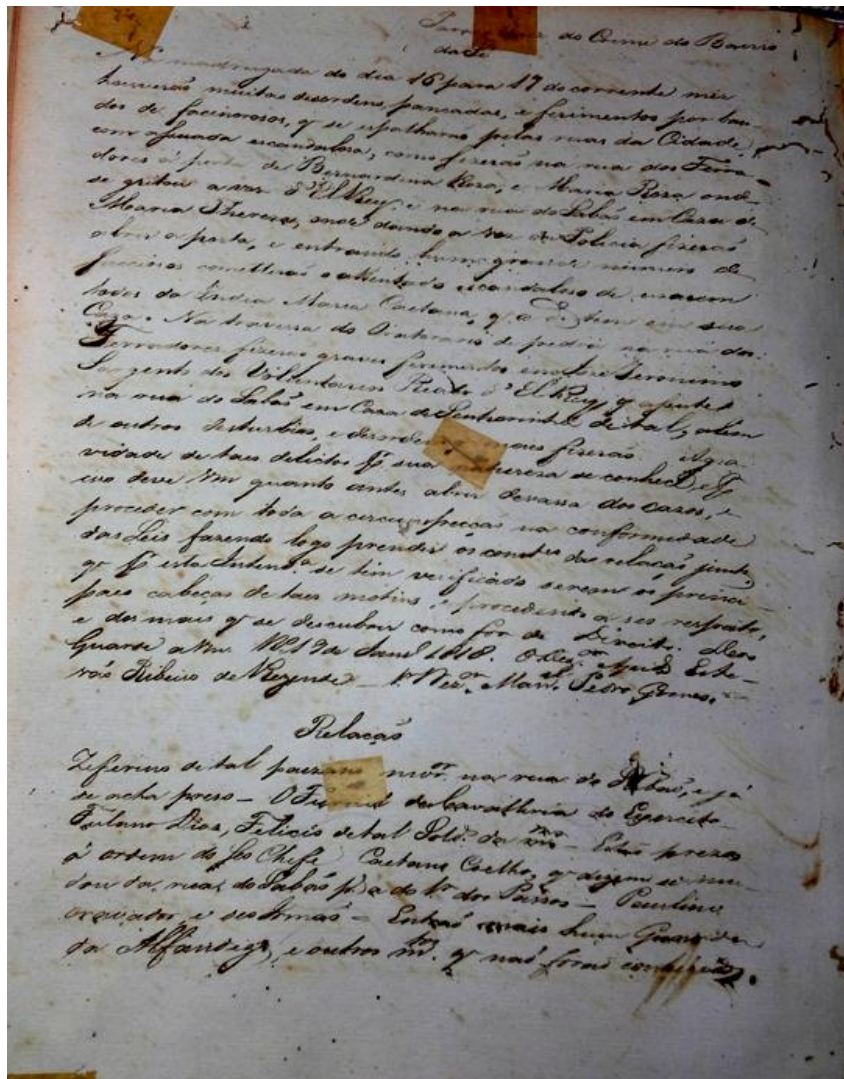 Para o Juiz do Crime do Bairro
da Sé
Na madrugada do dia 16 para 17 do corrente mez
houveraõ muitas desordens, pancadas, e ferimentos por ban-
dos de facinorosos, q̃ se espalharaõ pelas ruas da Cidade
com assuada escandalosa, como fizeraõ na rua dos Ferra-
dores á porta de Bernardina Roza, e Maria Roza onde
se gritou a voz d'ElRey, e na rua do Sabaõ em Caza de
Maria Thereza, onde dando a voz da Policia fizeraõ
abrir a porta, e entrando hum grande numero de
facinoros cometteraõ o attentado escandaloso de usarem
todos da India Maria Caetana, q̃ a d.ª tem em sua
Caza. Na travessa do de pedia na rua dos
Ferradores fizeraõ graves ferimentos em Jose Jeronimo
Sargento dos Voluntarios Reaes d'ElRey, e
na rua do Sabaõ em Caza de de tal, alem
de outros disturbios, e desordens q̃ mais fizeraõ. A gra-
vidade de taes delictos p̃ sua natureza se conhece, e p̃
isso deve Vm quanto antes abrir devassa dos cazos, e
proceder com toda a circunspecçaõ na conformidade
das Leis fazendo logo prender os const.es da relaçaõ junta,
q̃ p̃ esta Intend.ª se tem verificado serem os princi-
paes cabeças de taes motins, e procedendo a seo respeito,
e dos mais q̃ se descubrir como for de Direito. Deos
Guarde a Vm. R.º 19 de 1818. O Dez.or Este-
vaõ Ribeiro de Rezende — S.r Dez.or Man.el Pedro Gomes.
Relaçaõ
Zeferino de tal paizano mor.or na rua do Sabaõ, e já
se acha prezo — O Furriel da Cavallaria do Exercito
Fulano Dias, Felicio de tal Sold.º da m.ma — Estaõ prezos
á ordem do seo Chefe Caetano Coelho, q̃ dizem se mu-
dou da rua do Sabaõ p.ª a do S.r dos Passos — Paulino
cravador, e seo Irmaõ — Entraõ mais hum Guarda
da Alfandega, e outros m.tos q̃ naõ foraõ conhecidos.